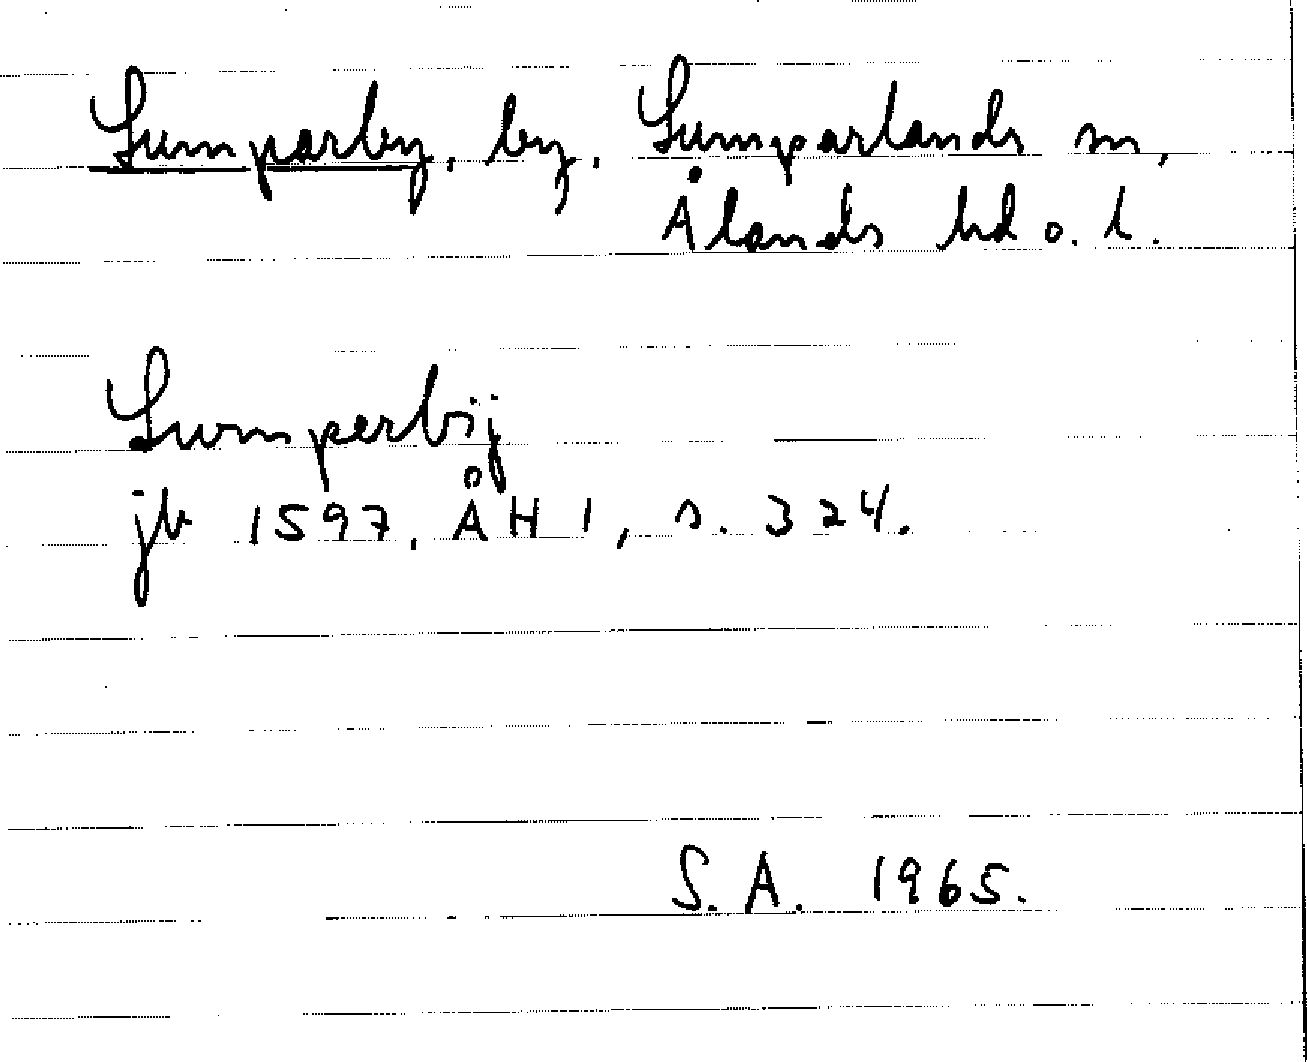 Lumparby, by, Lumparlands sn,
Ålands hd o. l.
Lumperbÿ
jb 1597, ÅH 1, s. 324.
S.A. 1965.